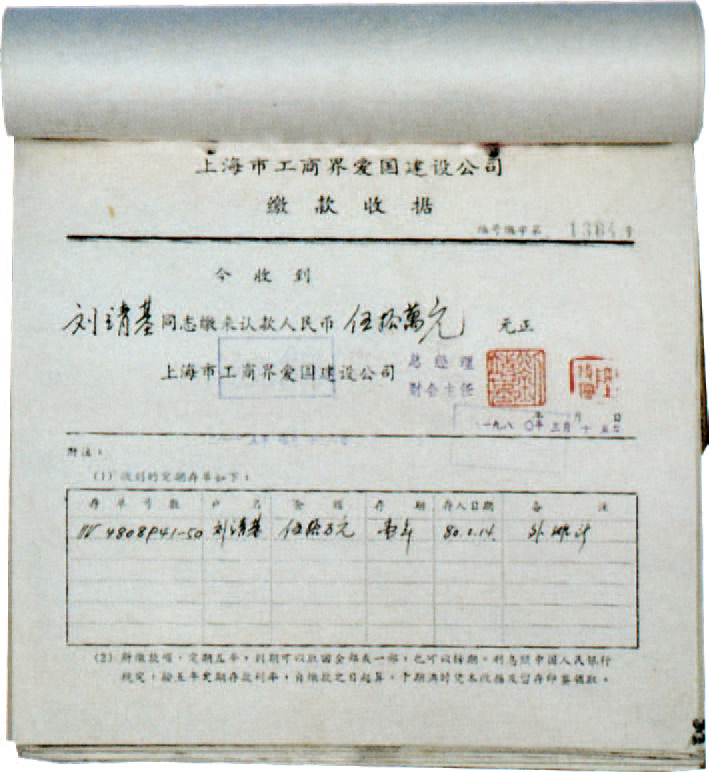 上海市工商界爱国建设公司
缴款收据
编号缴字第 1384 号
今收到
刘靖基同志缴来认款人民币 伍拾萬元 元正
上海市工商界爱国建设公司 总经理
财会主任
年 月 日
一九八〇年三月十五日
附注:
(1) 收到的定期存单如下:
存单号数 户名 金额 存期 存入日期 备注
4808941-50 刘靖基 伍拾万元 80.2.14.
(2) 所缴款项,定期五年,到期可以取回全部或一部,也可以转期。利息照中国人民银行
规定,按五年定期存款利率,自缴款之日起算。于期满时凭本收据及留存印鉴领取。